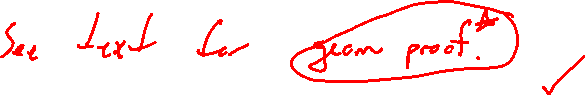 See text for geom proof.*